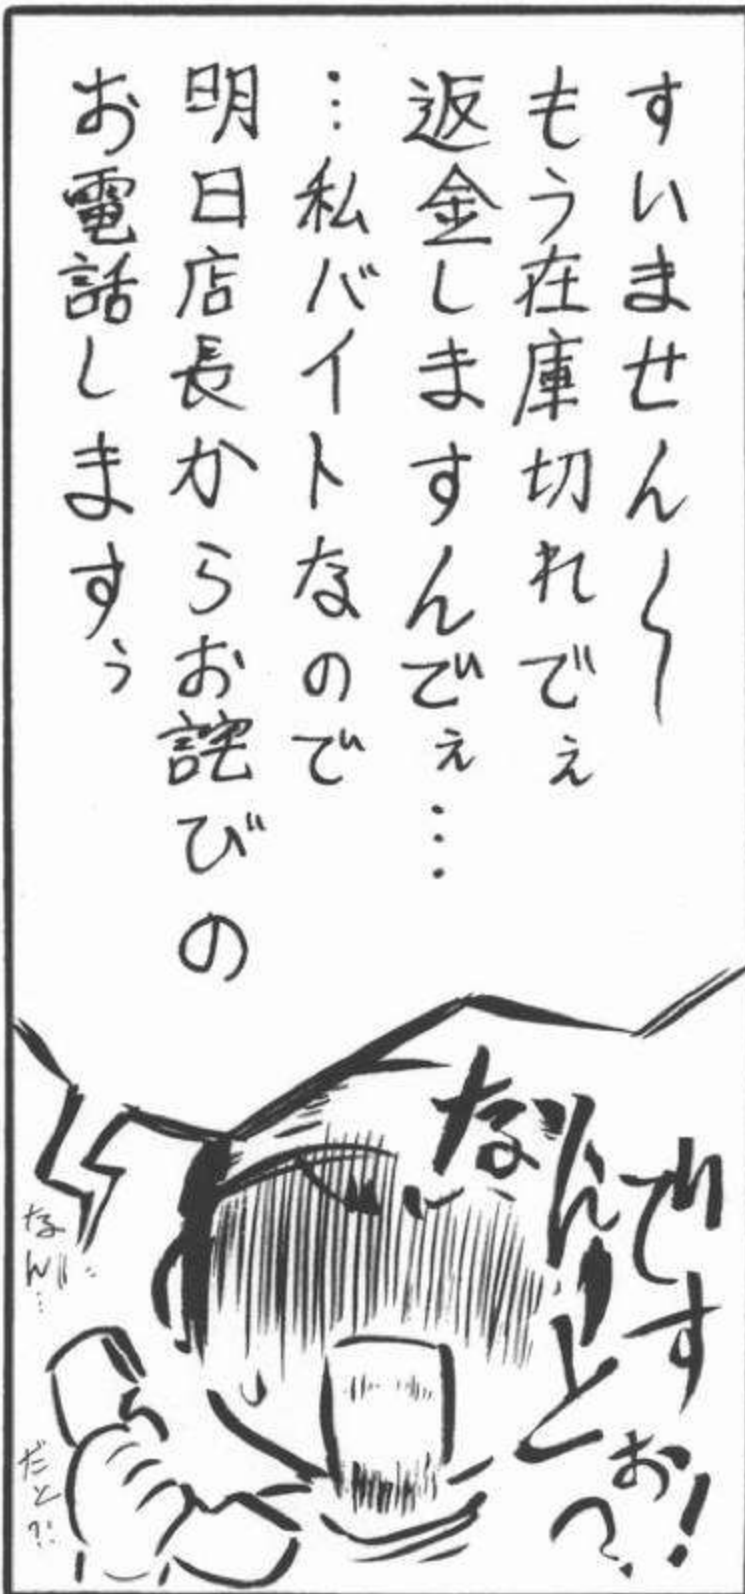 すいません～
もう在庫切れでぇ
返金しますんでぇ…
…私バイトなので
明日店長からお詫びの
お電話しますぅ
なんですとぉ！
なん…
だと?!